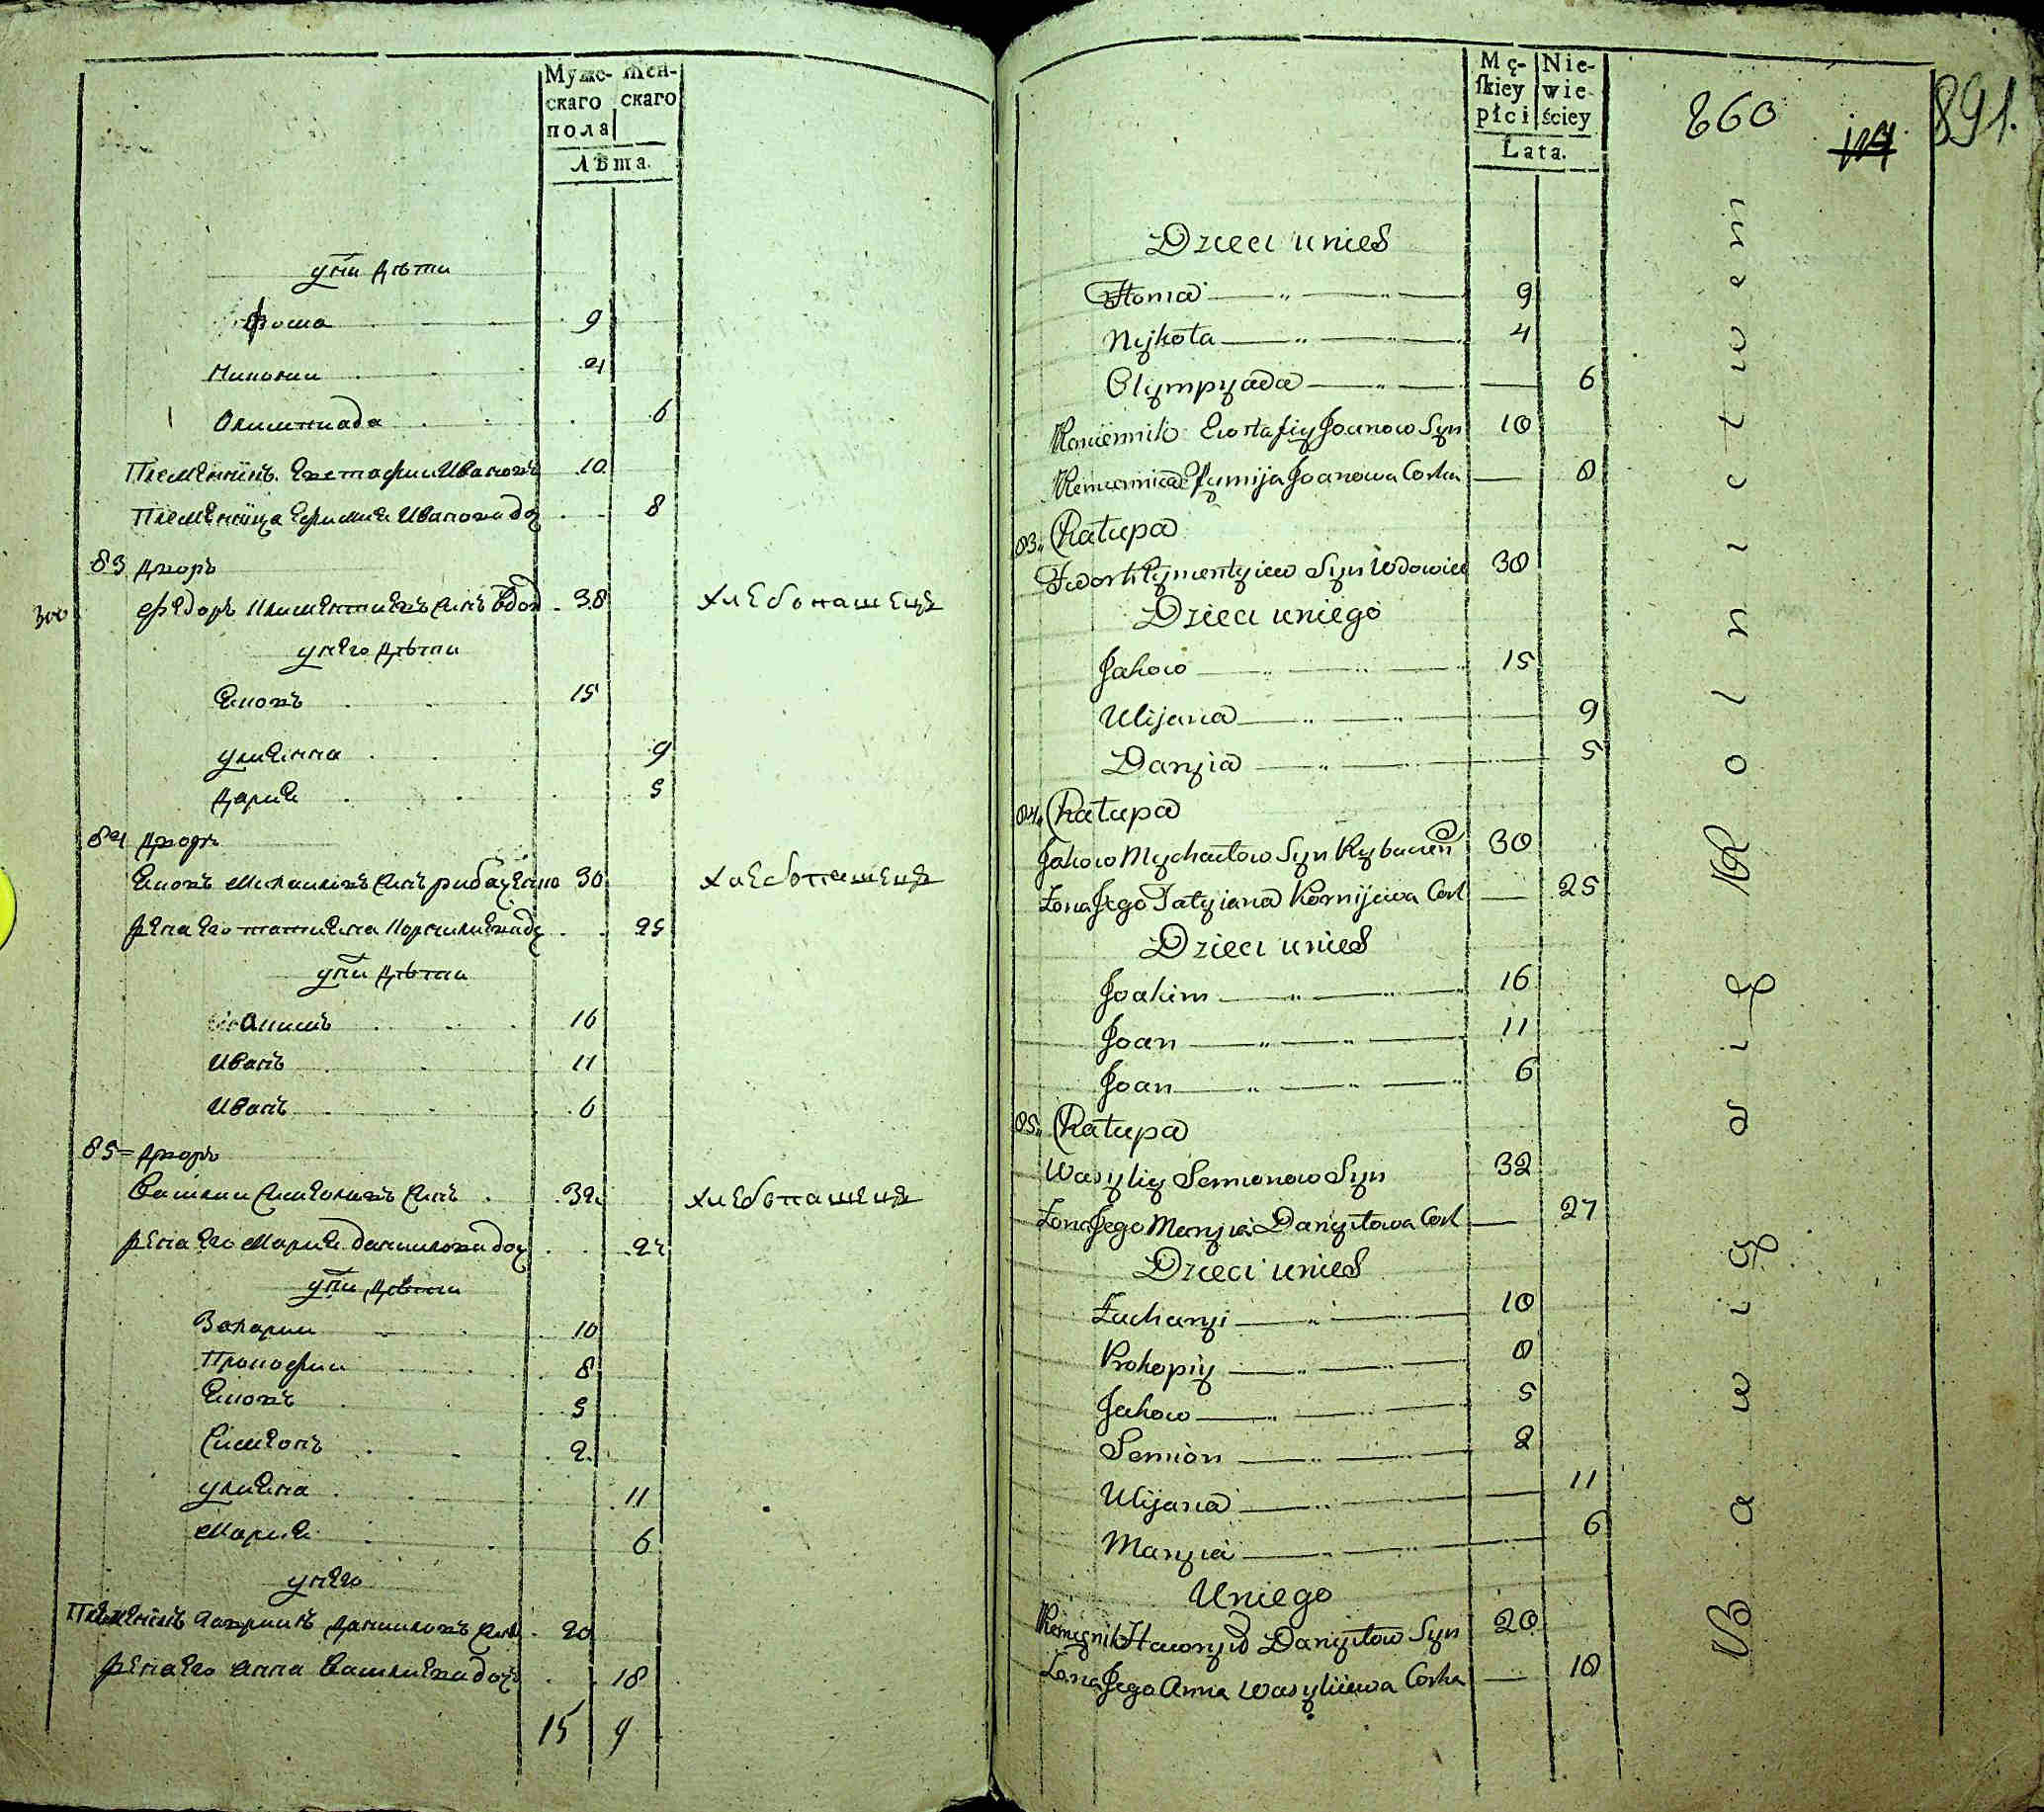 Муже-
скаго
пола
Жен-
скаго
Лѣта.
уни дѣти
Фома 9
Николаи 4
Олимпиада 6
Племеннікъ Евстафии Ивановъ 10
Племенніца Ефимия Иванова до 8
83 дворъ
300
Федоръ Климентиевъ синъ вдов 38 хлебопашецъ
унего дѣти
Яковъ 15
улиянна 9
Дария 5
84 дворъ
Яковъ Михаиловъ синъ рибаченко 30 хлебопашецъ
жена его татияна Корнилиева до 25
уни дѣти
Иоакимъ 16
Иванъ 11
Иванъ 6
85 = дворъ
Василии Симеоновъ синъ 32 хлебопашецъ
жена его Мария данилова доч 27
уни дѣти
Захарии 10
Прокофии 8
Яковъ 5
Симеонъ 2
улияна 11
Мария 6
унего
Племеннікъ Гаврилъ Даниловъ синъ 20
жена его Анна Василиева дочъ 18
15 9
Mę-
skiey
płci
Nie-
wie-
ściey
Lata.
860
891.
Dzieci unieŏ
Homa 9
Nykoła 4
Olympyada 6
Plemiennik Ewstafiy Joanow Syn 10
Plemiennica Efymija Joanowa Corka 8
83. Chałupa
Fedor Klymentyiew Syn Wdowiec 38
Dzieci uniego
Jakow 15
Ulijana 9
Daryia 5
84. Chałupa
Jakow Mychaiłow Syn Rybacień 30
Zona Jego Tatyiana Kornijewa Cork 25
Dzieci unieŏ
Joakim 16
Joan 11
Joan 6
85. Chałupa
Wasyliy Semionow Syn 32
Zona Jego Maryia Danyłowa Cork 27
Dzieci unieŏ
Zacharyi 10
Prokopiy 8
Jakow 5
Semion 2
Ulijana 11
Maryia 6
Uniego
Plemiennik Hawryło Danyłow Syn 20
Zona Jego Anna Wasyliiewa Corka 18
Bawią się Rolnictwem